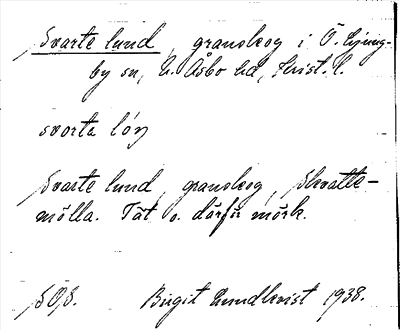 Svarte lund, granskog i Ö. Ljung-
by sn, N. Åsbo hd, Krist. l.
svarta lóŋ
Svarte lund, granskog, Skvatte-
mölla. Tät o. därför mörk.
SOS. Birgit Lundkvist 1938.